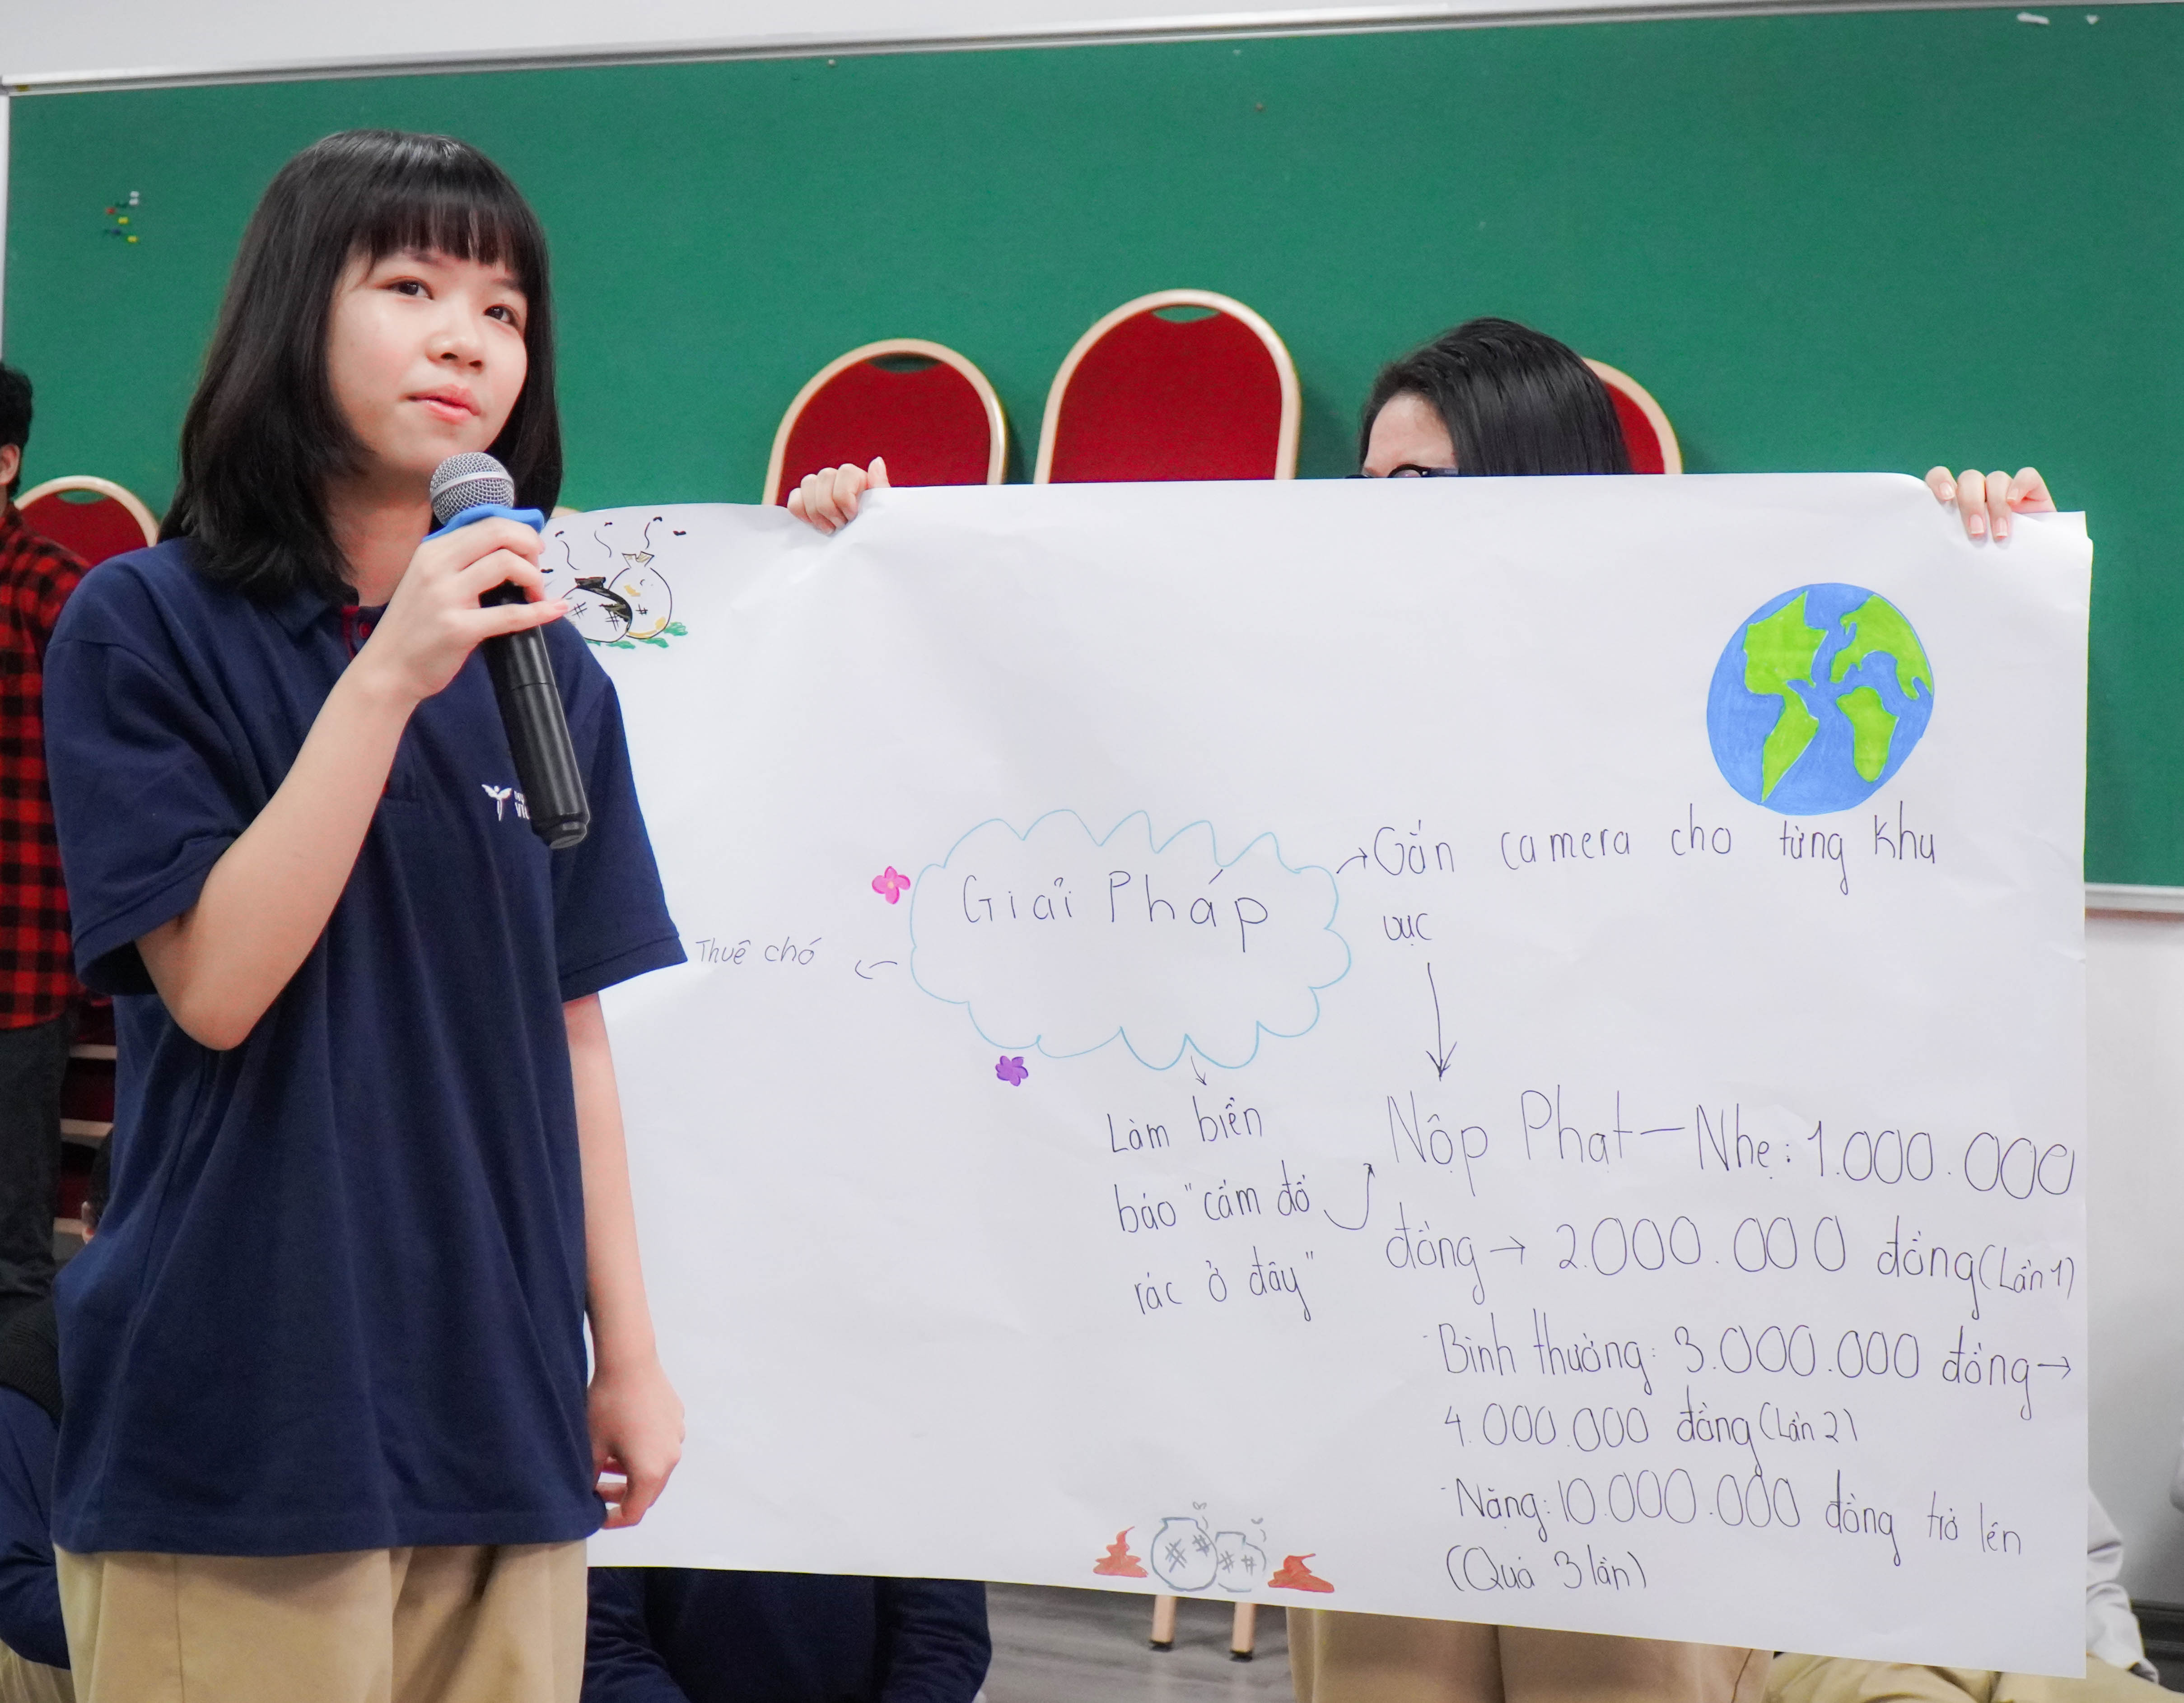 Giải Pháp
Thuê chó
Gắn camera cho từng khu
vực
Làm biển
báo "cấm đổ
rác ở đây"
Nộp Phạt - Nhẹ: 1.000.000
đồng → 2.000.000 đồng (Lần 1)
- Bình thường: 3.000.000 đồng →
4.000.000 đồng (Lần 2)
- Nặng: 10.000.000 đồng trở lên
(Quá 3 lần)